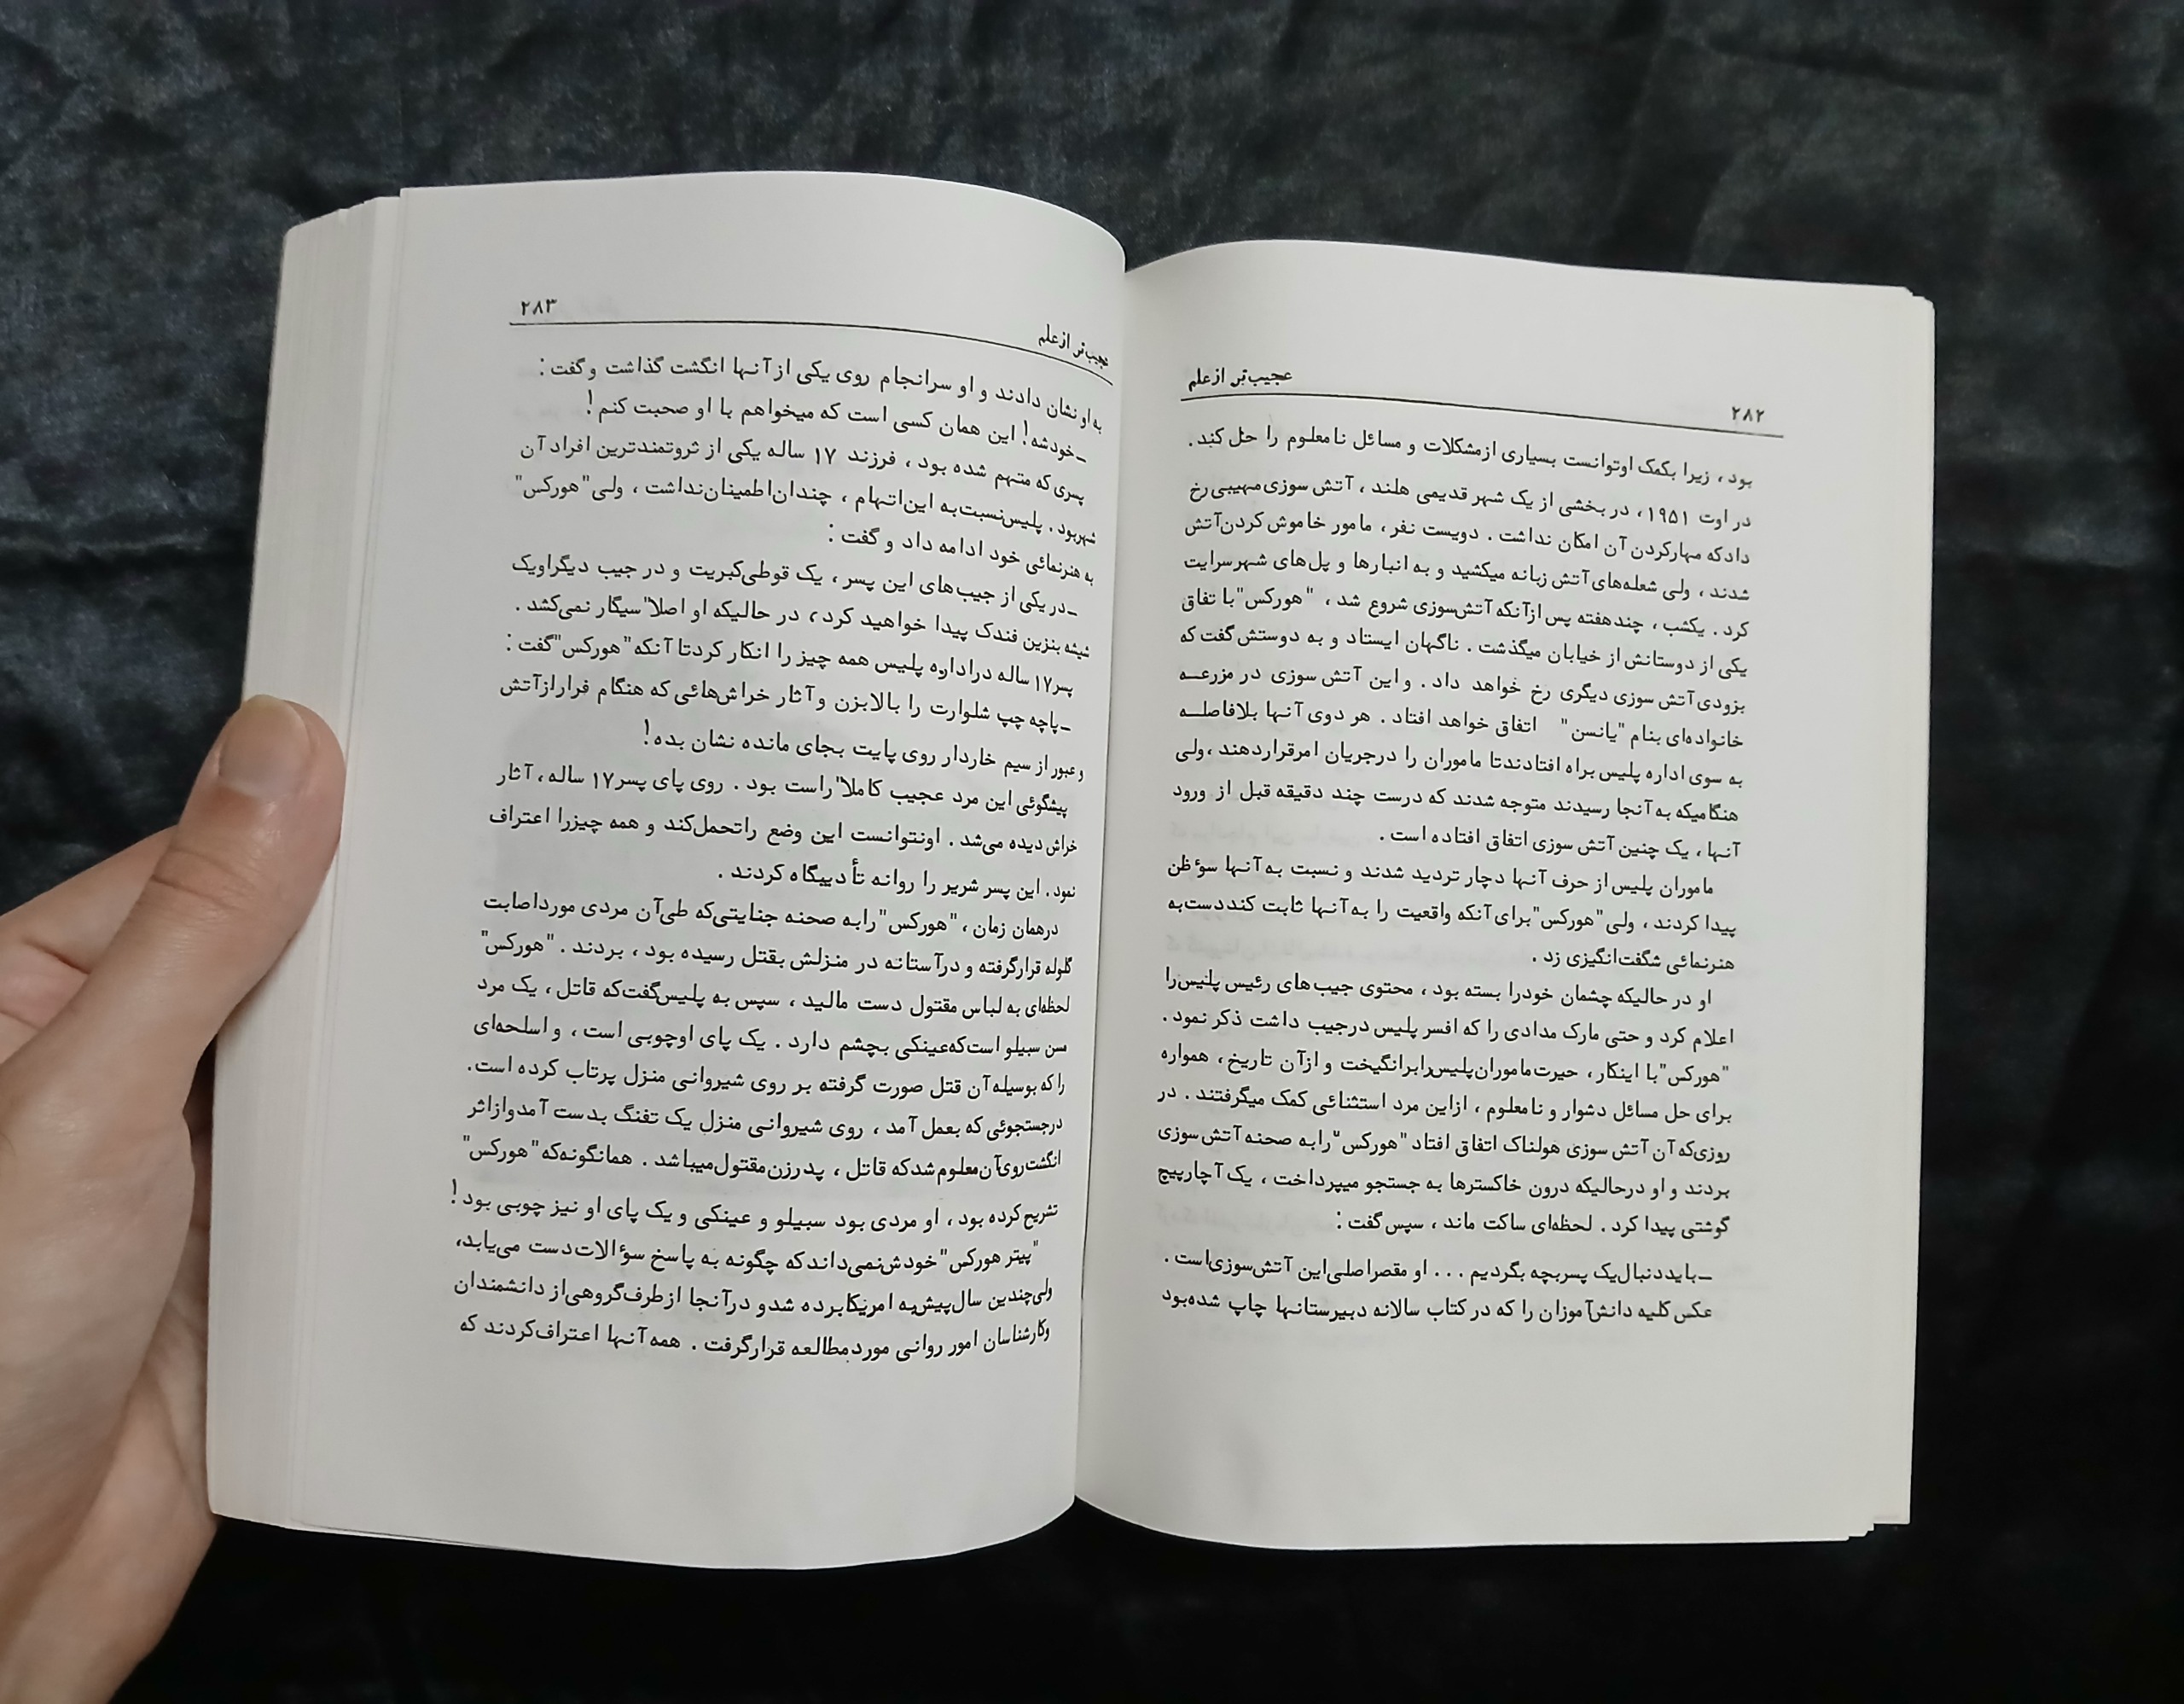 ۲۸۲
عجیب‌تر از علم
بود ، زیرا بکمک اوتوانست بسیاری ازمشکلات و مسائل نامعلوم را حل کند .
در اوت ۱۹۵۱ ، در بخشی از یک شهر قدیمی هلند ، آتش سوزی مهیبی رخ
دادکه مهارکردن آن امکان نداشت . دویست نفر ، مامور خاموش کردن آتش
شدند ، ولی شعله‌های آتش زبانه میکشید و به انبارها و پل‌های شهر سرایت
کرد . یکشب ، چندهفته پس ازآنکه آتش‌سوزی شروع شد ، "هورکس" با تفاق
یکی از دوستانش از خیابان میگذشت . ناگهان ایستاد و به دوستش گفت که
بزودی آتش سوزی دیگری رخ خواهد داد . و این آتش سوزی در مزرعه
خانواده‌ای بنام "یانسن" اتفاق خواهد افتاد . هر دوی آنها بلافاصله
به سوی اداره پلیس براه افتادندتا ماموران را درجریان امرقراردهند ،ولی
هنگامیکه به آنجا رسیدند متوجه شدند که درست چند دقیقه قبل از ورود
آنها ، یک چنین آتش سوزی اتفاق افتاده است .
ماموران پلیس از حرف آنها دچار تردید شدند و نسبت به آنها سوءظن
پیدا کردند ، ولی "هورکس" برای آنکه واقعیت را به آنها ثابت کند دست به
هنرنمائی شگفت‌انگیزی زد .
او در حالیکه چشمان خودرا بسته بود ، محتوی جیب‌های رئیس پلیس را
اعلام کرد و حتی مارک مدادی را که افسر پلیس درجیب داشت ذکر نمود .
"هورکس" با اینکار ، حیرت ماموران پلیس رابرانگیخت و ازآن تاریخ ، همواره
برای حل مسائل دشوار و نامعلوم ، ازاین مرد استثنائی کمک میگرفتند . در
روزی که آن آتش سوزی هولناک اتفاق افتاد "هورکس" را به صحنه آتش سوزی
بردند و او درحالیکه درون خاکسترها به جستجو میپرداخت ، یک آچارپیچ
گوشتی پیدا کرد . لحظه‌ای ساکت ماند ، سپس گفت :
ـ باید دنبال یک پسربچه بگردیم ... او مقصر اصلی این آتش‌سوزی است .
عکس کلیه دانش‌آموزان را که در کتاب سالانه دبیرستانها چاپ شده‌بود
عجیب‌تر از علم
۲۸۳
به او نشان دادند و او سرانجام روی یکی از آنها انگشت گذاشت و گفت :
ـ خودشه! این همان کسی است که میخواهم با او صحبت کنم !
پسری که متهم شده بود ، فرزند ۱۷ ساله یکی از ثروتمندترین افراد آن
شهربود . پلیس نسبت به این اتهام ، چندان اطمینان نداشت ، ولی "هورکس"
به هنرنمائی خود ادامه داد و گفت :
ـ در یکی از جیب‌های این پسر ، یک قوطی کبریت و در جیب دیگراویک
شیشه بنزین فندک پیدا خواهید کرد ، در حالیکه او اصلا" سیگار نمی‌کشد .
پسر ۱۷ ساله دراداره پلیس همه چیز را انکار کردتا آنکه "هورکس" گفت :
ـ پاچه چپ شلوارت را بالابزن و آثار خراش‌هائی که هنگام فرارازآتش
و عبور از سیم خاردار روی پایت بجای مانده نشان بده !
پیشگوئی این مرد عجیب کاملا" راست بود . روی پای پسر ۱۷ ساله ، آثار
خراش دیده می‌شد . اونتوانست این وضع راتحمل‌کند و همه چیزرا اعتراف
نمود . این پسر شریر را روانه تأدیبگاه کردند .
درهمان زمان ، "هورکس" رابه صحنه جنایتی‌که طی‌آن مردی مورداصابت
گلوله قرارگرفته و درآستانه در منزلش بقتل رسیده بود ، بردند . "هورکس"
لحظه‌ای به لباس مقتول دست مالید ، سپس به پلیس‌گفت‌که قاتل ، یک مرد
مسن سبیلو است‌که عینکی بچشم دارد . یک پای اوچوبی است ، و اسلحه‌ای
را که بوسیله آن قتل صورت گرفته بر روی شیروانی منزل پرتاب کرده است .
درجستجوئی که بعمل آمد ، روی شیروانی منزل یک تفنگ بدست آمدوازاثر
انگشت روی‌آن معلوم شدکه قاتل ، پدرزن مقتول میباشد . همانگونه‌که "هورکس"
تشریح کرده بود ، او مردی بود سبیلو و عینکی و یک پای او نیز چوبی بود !
"پیتر هورکس" خودش نمی‌داند که چگونه به پاسخ سؤالات دست می‌یابد ،
ولی چندین سال پیش به امریکا برده شدو درآنجا ازطرف گروهی از دانشمندان
و کارشناسان امور روانی موردمطالعه قرارگرفت . همه آنها اعتراف کردند که